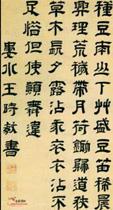 種豆南山下艸盛豆苗稀晨
興理荒穢帶月荷鋤歸道狹
草木長夕露沾我衣衣沾不
足惜但使願無違
婁水王時敏書